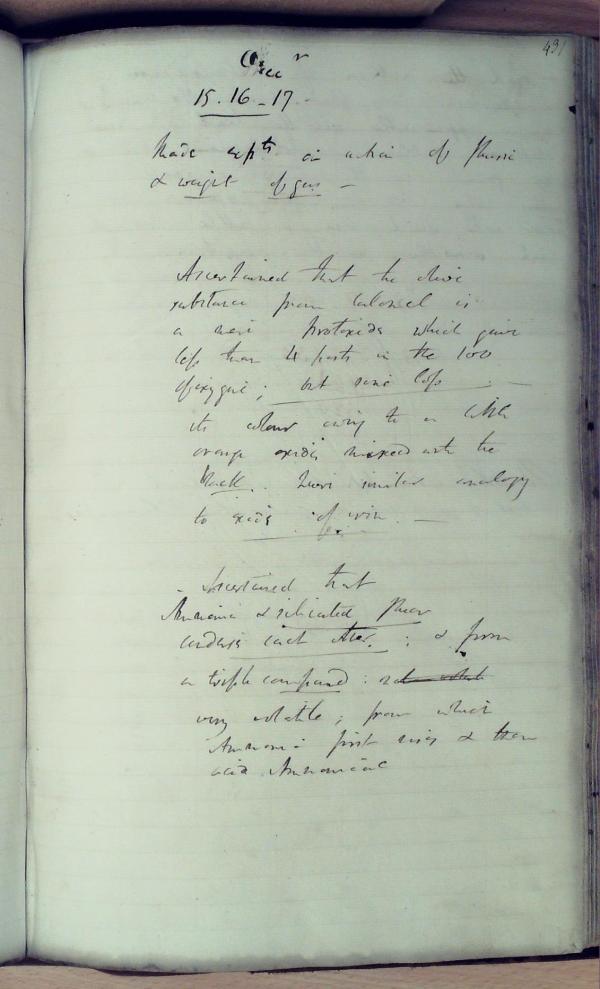 431
Decr
15. 16 - 17
Made expts on action of Fluoric
& weight of gas -
Ascertained that the olive
substance from Calomel is
a new protoxide which gave
less than 4 parts in the 100
of oxygene; but some loss -
its colour owing to a little
orange oxide mixed with the
black. similar analogy
to oxide of iron. -
- Ascertained that
Ammonia & silicated fluor
each other. ; & form
a triple compound : not volatile
very volatile ; from which
Ammonia first rises & then
acid Ammoniac